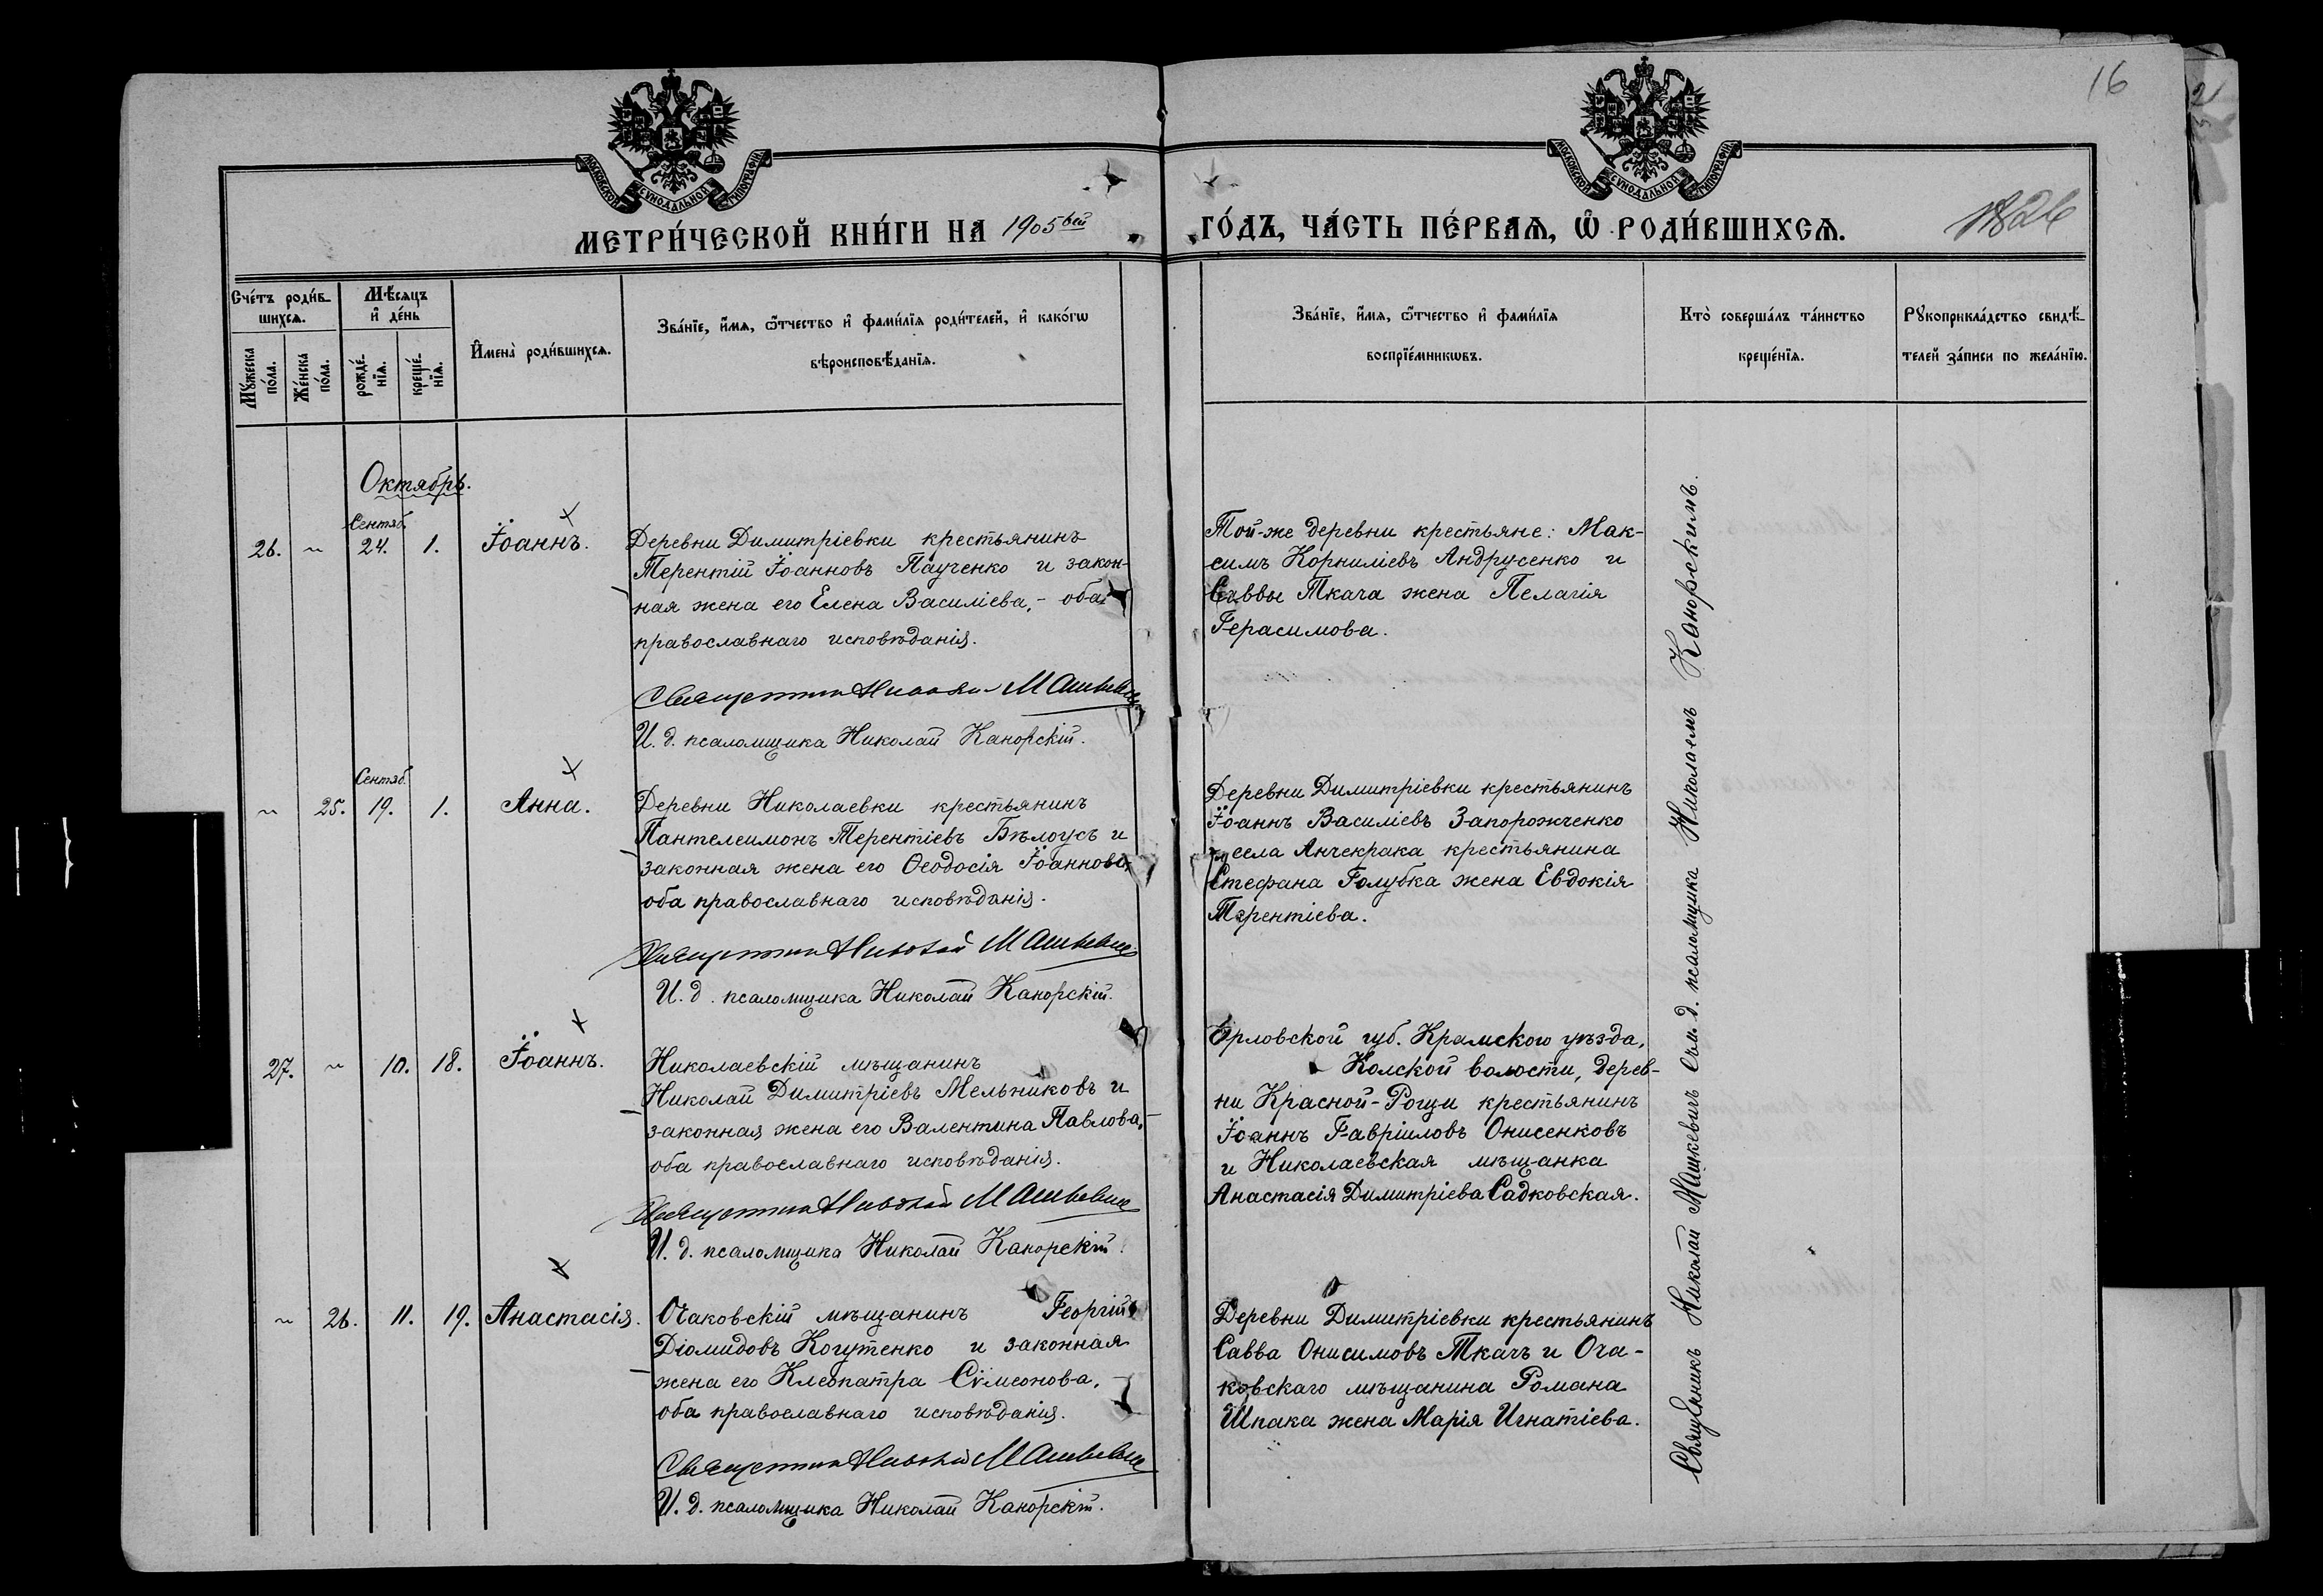 16
МОСКОВСКОЙ СѴНОДАЛЬНОЙ ТИПОГРАФІИ
МОСКОВСКОЙ СѴНОДАЛЬНОЙ ТИПОГРАФІИ
МЕТРИ́ЧЕСКОЙ КНИ́ГИ НА 1905ый
ГО́ДЪ, ЧА́СТЬ ПЕ́РВАѦ, Ѽ РОДИ́ВШИХСѦ.
Сче́тъ роди́в-
шихсѧ.
Мѣ́сѧцъ
и҆ де́нь
Мꙋ́жеска по́ла.
Же́нска по́ла.
рожде́-
нїѧ.
креще́-
нїѧ.
И҆мена̀ роди́вшихсѧ.
Зва́нїе, и҆́мѧ, ѻ҆́тчество и҆ фами́лїѧ роди́телей, и҆ како́гѡ
вѣроисповѣ́данїѧ.
Зва́нїе, и҆́мѧ, ѻ҆́тчество и҆ фами́лїѧ
воспрїе́мникѡвъ.
Кто̀ соверша́лъ та́инство
креще́нїѧ.
Рꙋкоприкла́дство свидѣ́-
телей за́писи по жела́нїю.
Октябрь.
Сентяб.
26. ~ 24. 1. Іоаннъ.
Деревни Димитріевки крестьянинъ
Терентій Іоанновъ Паученко и закон-
ная жена его Елена Василіева,- оба
православнаго исповѣданія.
Священникъ Николай Машкевичъ
И. д. псаломщика Николай Канорскій.
Той-же деревни крестьяне: Мак-
симъ Корниліевъ Андрусенко и
Саввы Ткача жена Пелагія
Герасимова.
Сентяб.
~ 25. 19. 1. Анна.
Деревни Николаевки крестьянинъ
Пантелеимонъ Терентіевъ Бѣлоусъ и
законная жена его Ѳеодосія Іоаннова,
оба православнаго исповѣданія.
Священникъ Николай Машкевичъ
И. д. псаломщика Николай Канорскій.
Деревни Димитріевки крестьянинъ
Іоаннъ Василіевъ Запорожченко
и села Анчекрака крестьянина
Стефана Голубка жена Евдокія
Терентіева.
27. ~ 10. 18. Іоаннъ.
Николаевскій мѣщанинъ
Николай Димитріевъ Мельниковъ и
законная жена его Валентина Павлова,-
оба православнаго исповѣданія.
Священникъ Николай Машкевичъ
И. д. псаломщика Николай Канорскій.
Орловской губ. Крамского уѣзда,
Колской волости, дерев-
ни Красной-Рощи крестьянинъ
Іоаннъ Гавріиловъ Онисенковъ
и Николаевская мѣщанка
Анастасія Димитріева Садковская.
~ 26. 11. 19. Анастасія.
Очаковскій мѣщанинъ Георгій
Діомидовъ Когутенко и законная
жена его Клеопатра Сѵмеонова,-
оба православнаго исповѣданія.
Священникъ Николай Машкевичъ
И. д. псаломщика Николай Канорскій.
Деревни Димитріевки крестьянинъ
Савва Онисимовъ Ткачъ и Оча-
ковскаго мѣщанина Романа
Шпака жена Марія Игнатіева.
Священникъ Николай Машкевичъ съ и. д. псаломщика Николаемъ Канорскимъ.